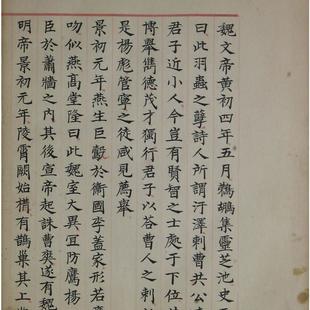 魏文帝黃初四年五月鵜鶘集靈芝池史
曰此羽蟲之孽詩人所謂汙澤刺曹共公
君子近小人今豈有賢智之士處于下位
博舉雋德茂才獨行君子以荅曹人之刺
是楊彪管寧之徒咸見薦舉
景初元年燕生巨鷇於衞國李蓋家形若
吻似燕高堂隆曰此魏室大異宜防鷹揚
臣於蕭牆之內其後宣帝起誅曹爽遂有魏
明帝景初元年陵霄闕始搆有鵲巢其上